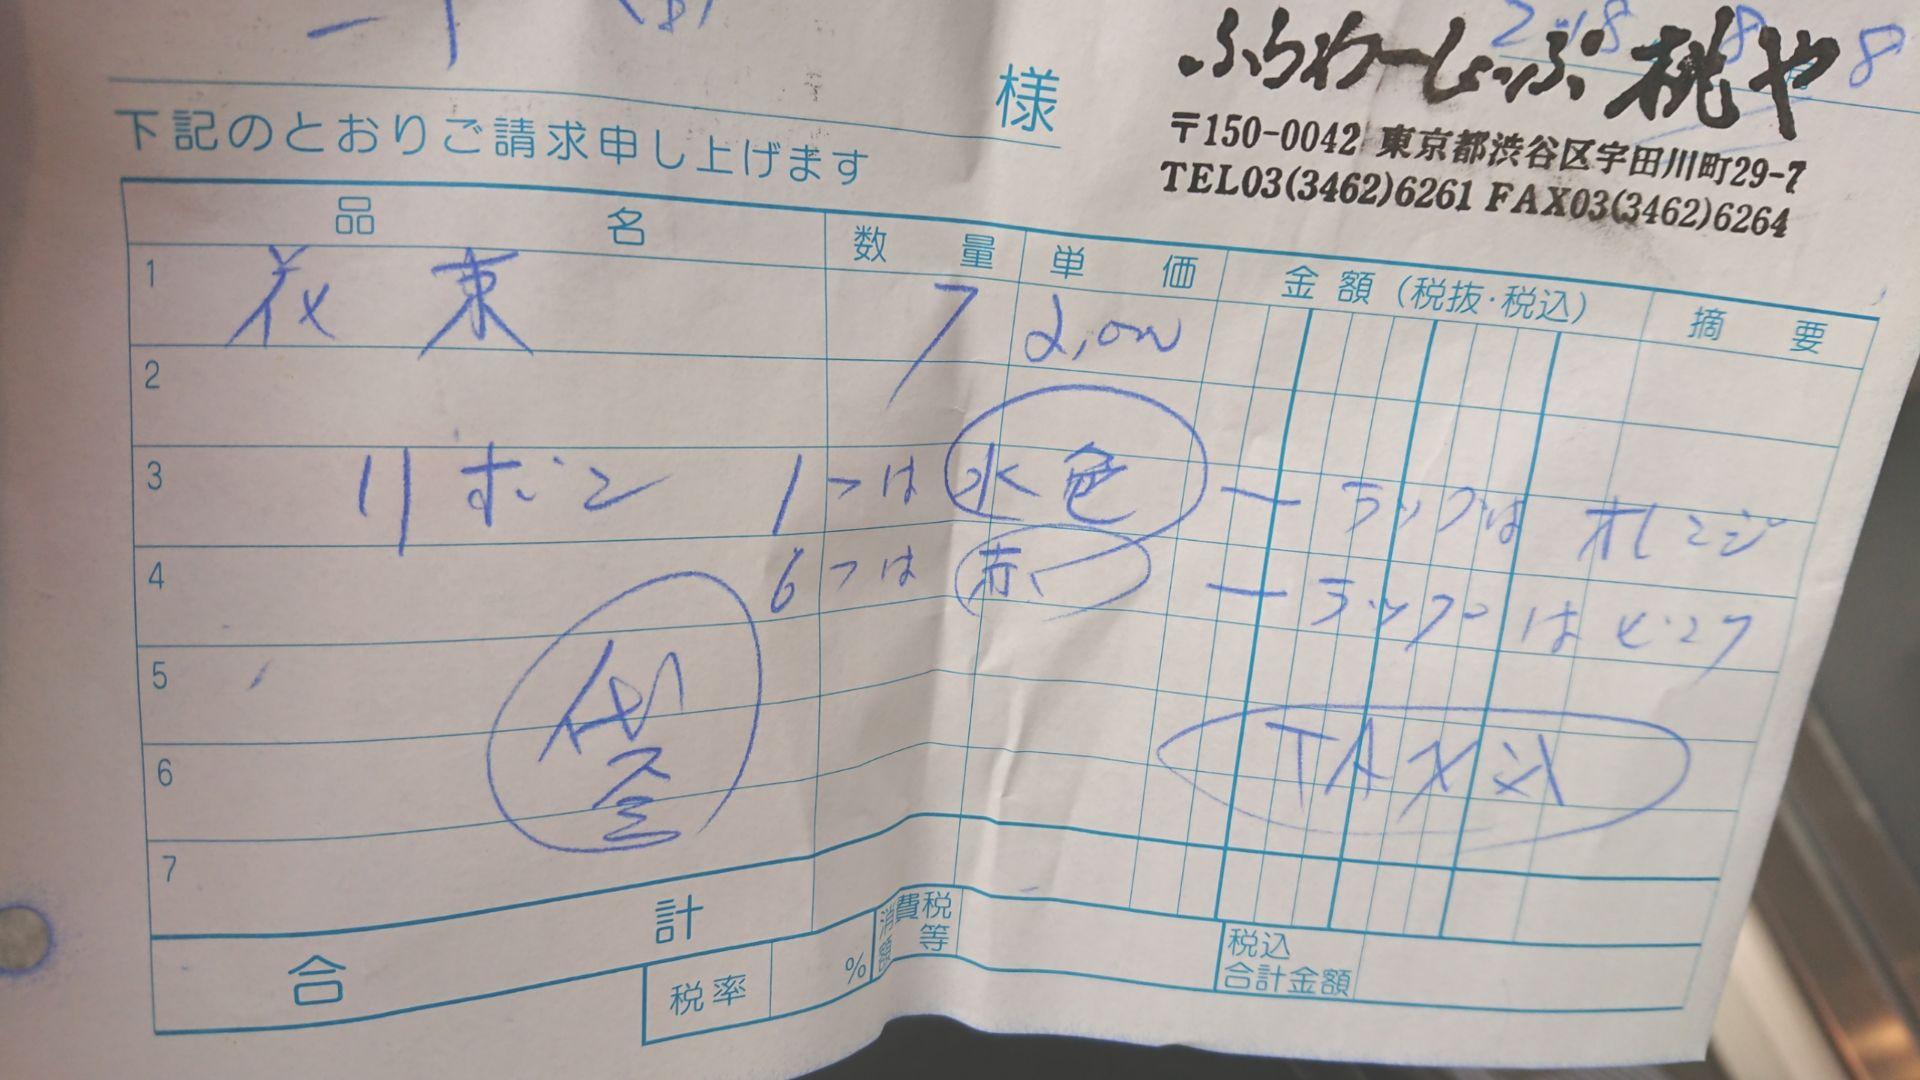 ふらわーしょっぷ 桃や
様
〒150-0042 東京都渋谷区宇田川町29-7
下記のとおりご請求申し上げます
TEL03(3462)6261 FAX03(3462)6264
品名 数量 単価 金額(税抜・税込) 摘要
1 花束 7 2,000
2
3 リボン 1つは 水色 ー ラップは オレンジ
4 6つは 赤 ー ラップは ピンク
5
6 袋 TAX込
7
合計
税率 % 消費税額等 税込合計金額